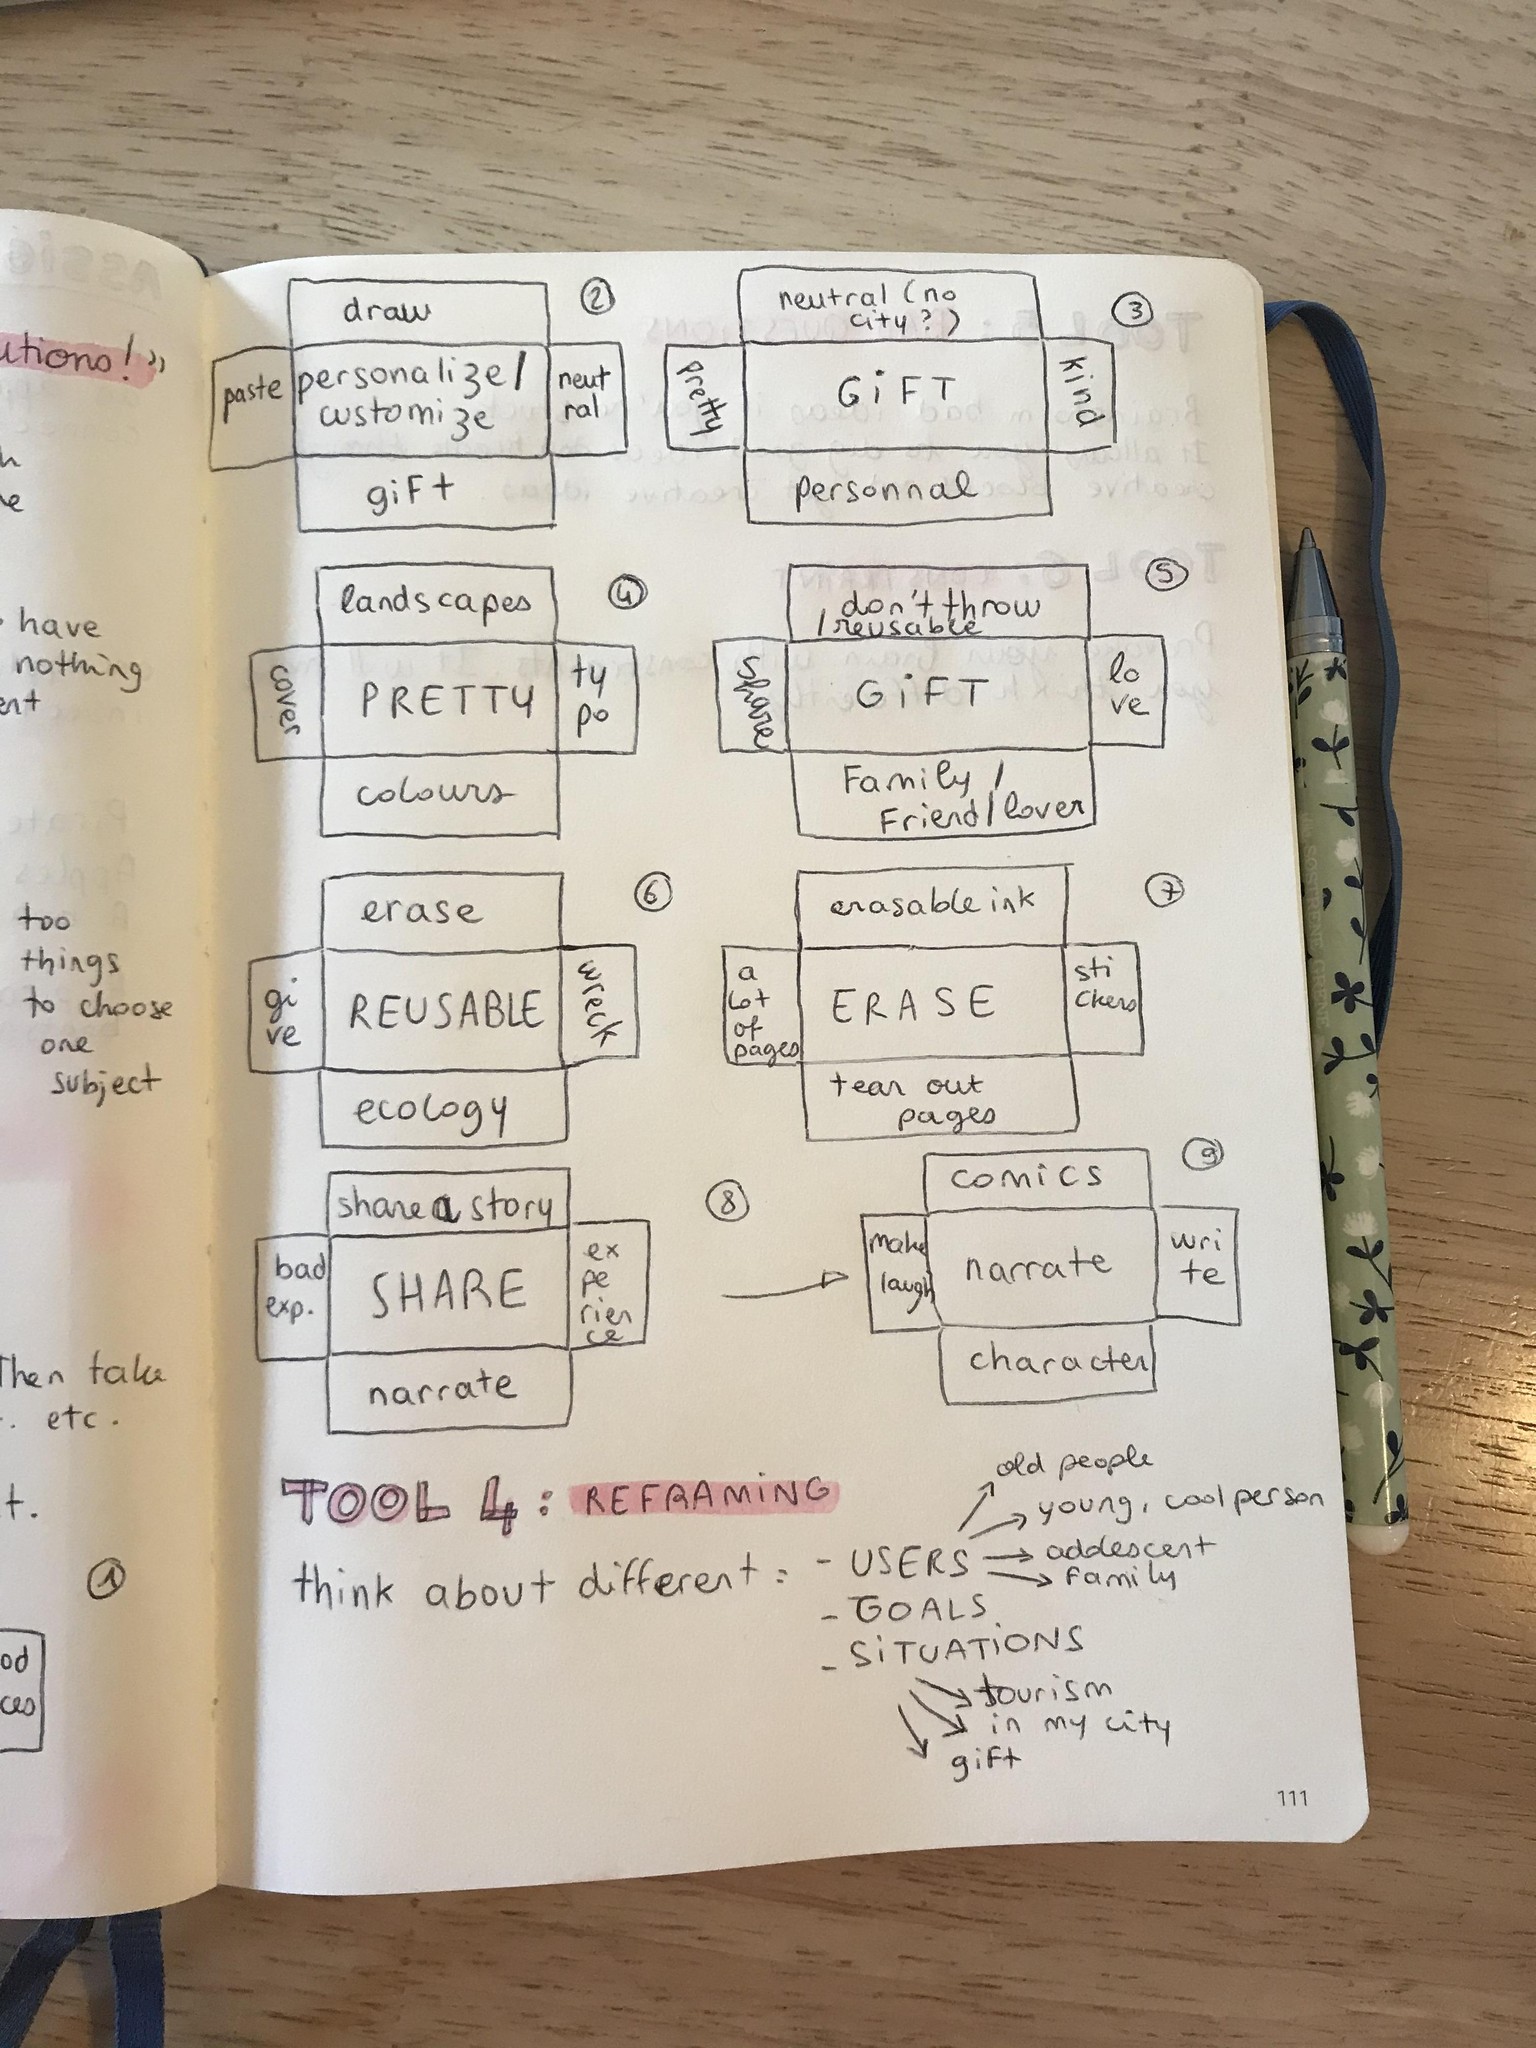 utions!"
have
nothing
ent
too
things
to choose
one
subject
Then take
. etc.
t.
1
od
ces
draw
2
paste
personalize/
customize
neut
ral
gift
neutral (no
city?)
3
pretty
GiFT
kind
personnal
landscapes
4
cover
PRETTY
ty
po
colours
don't throw
/reusable
5
share
GiFT
lo
ve
Family /
Friend/lover
erase
6
gi
ve
REUSABLE
wreck
ecology
erasable ink
7
a
lot
of
pages
ERASE
sti
ckers
tear out
pages
share a story
8
bad
exp.
SHARE
ex
pe
rien
ce
narrate
comics
9
make
laugh
narrate
wri
te
character
TOOL 4: REFRAMING
think about different :
- USERS
old people
young, cool person
addescent
family
- GOALS
- SiTUATiONS
tourism
in my city
gift
111